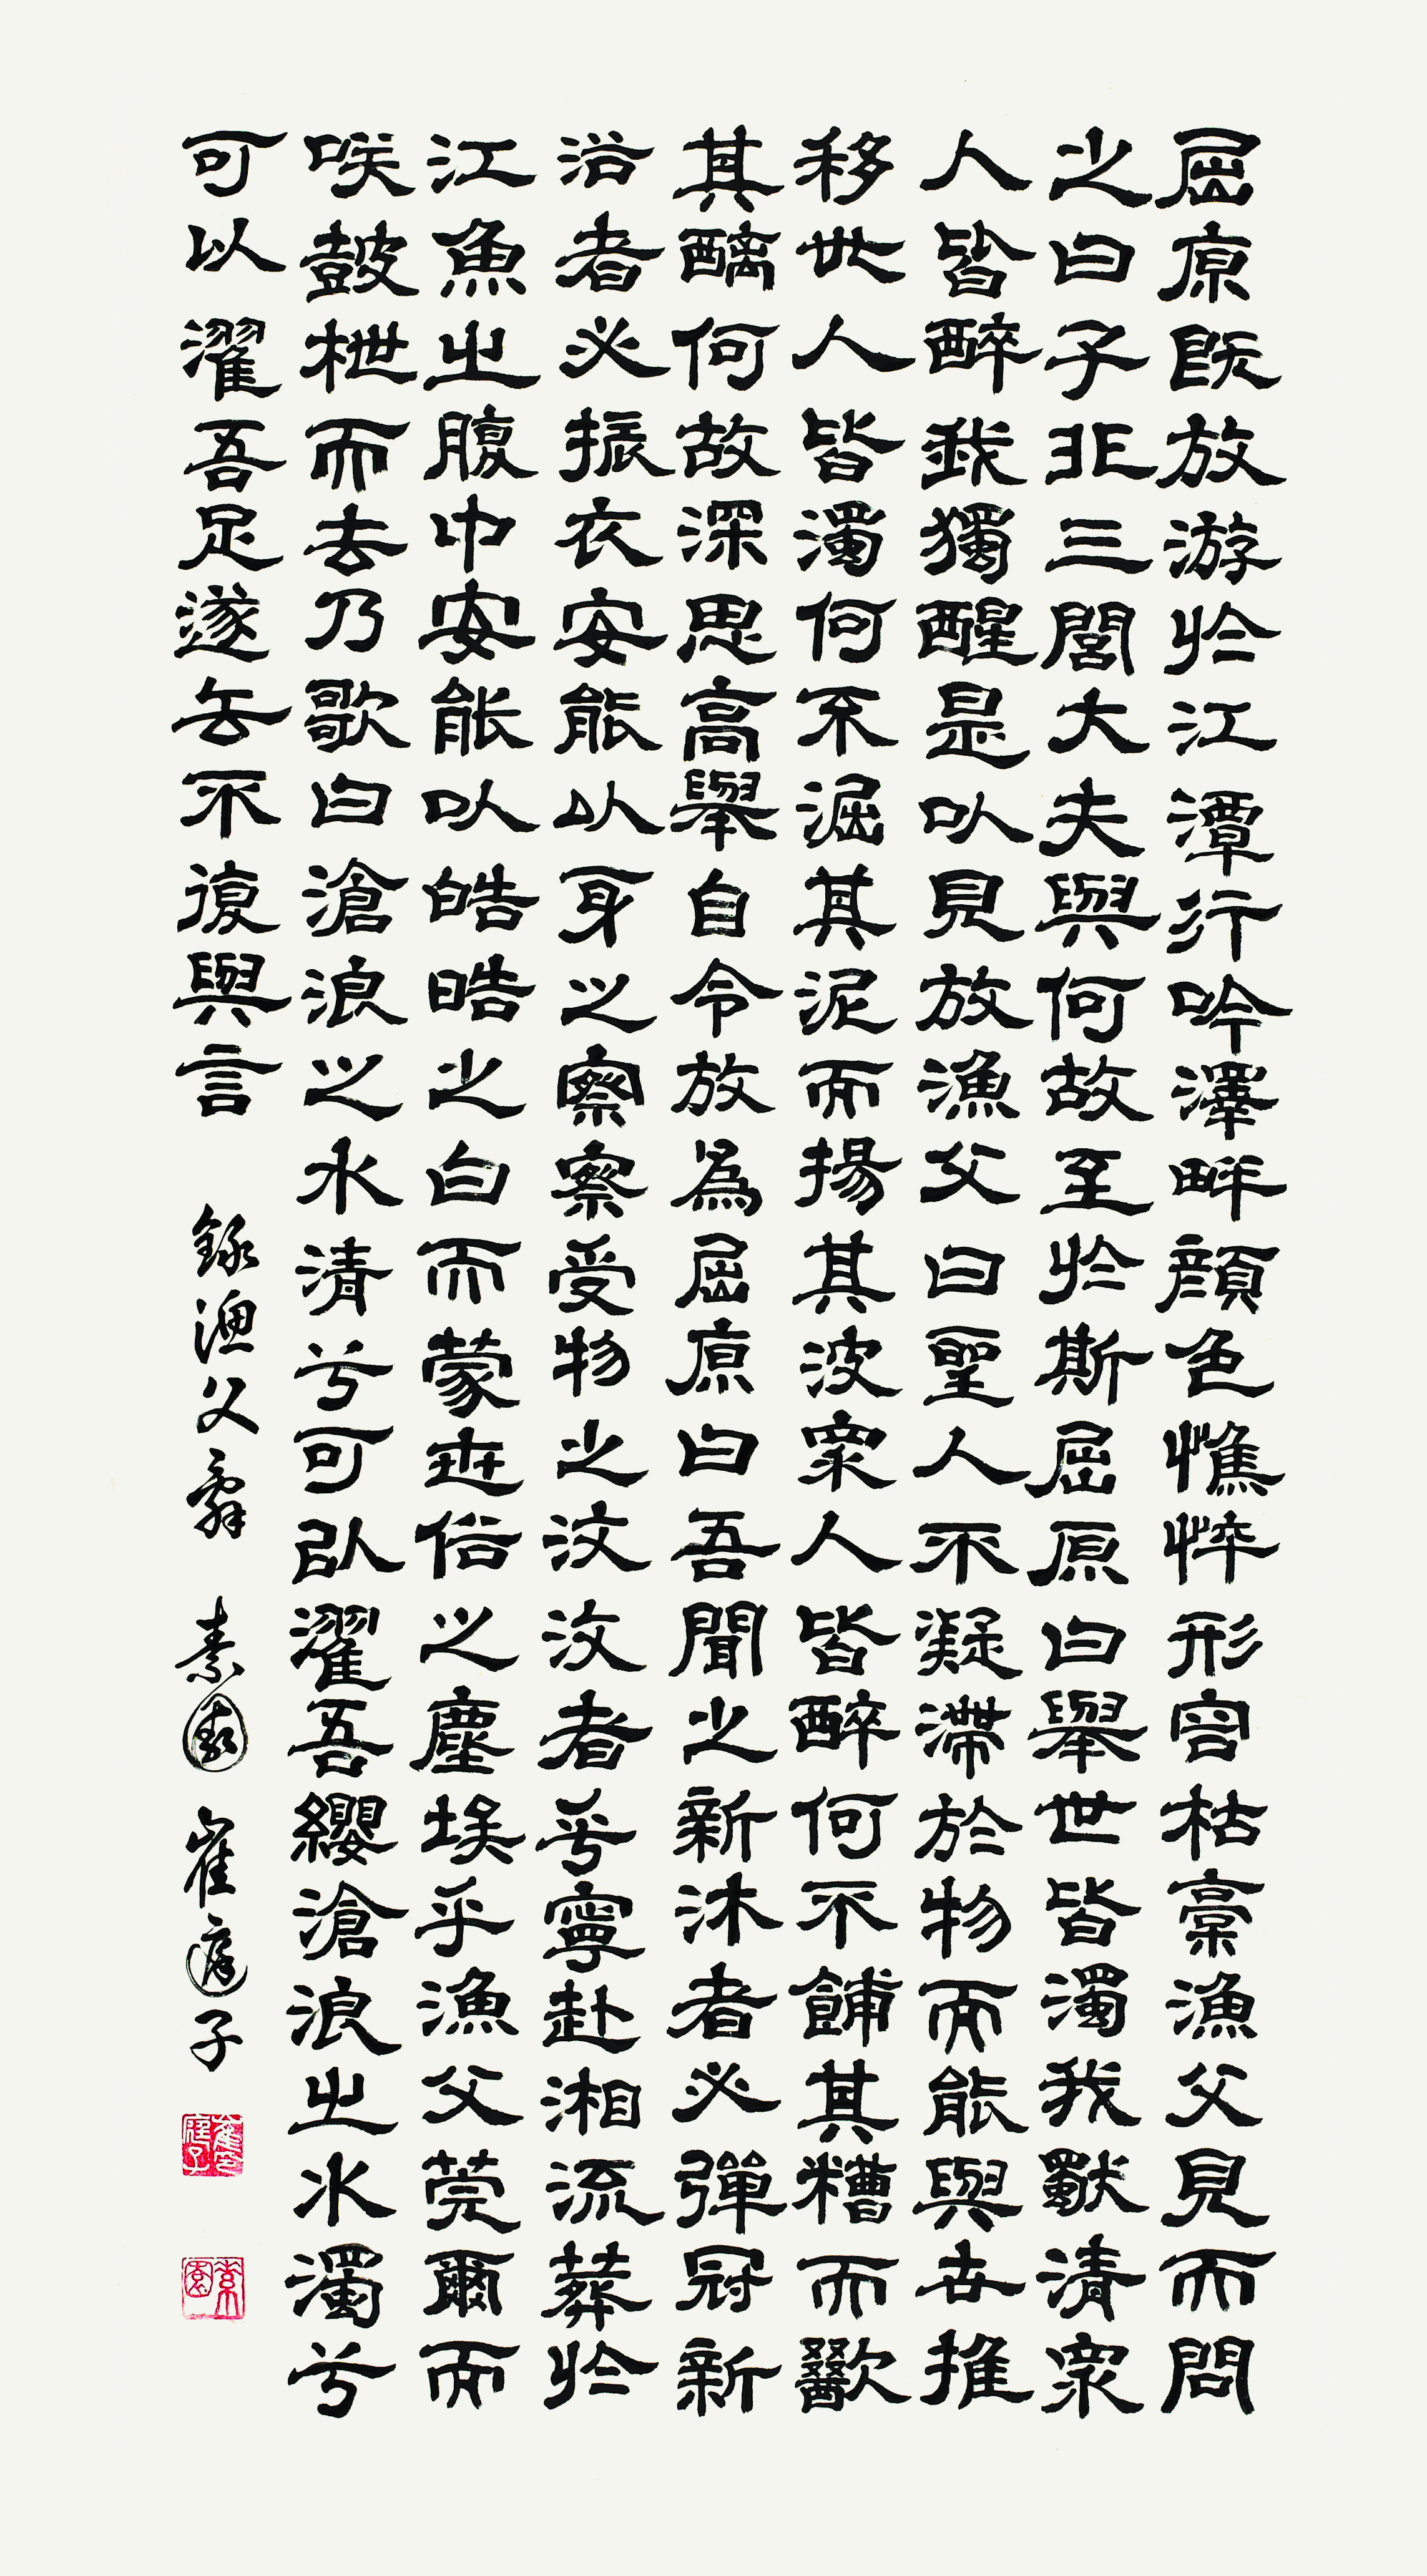 屈原旣放游於江潭行吟澤畔顔色憔悴形容枯槀漁父見而問
之曰子非三閭大夫與何故至於斯屈原曰擧世皆濁我獨清衆
人皆醉我獨醒是以見放漁父曰聖人不凝滯於物而能與世推
移世人皆濁何不淈其泥而揚其波衆人皆醉何不餔其糟而歠
其醨何故深思高擧自令放爲屈原曰吾聞之新沐者必彈冠新
浴者必振衣安能以身之察察受物之汶汶者乎寧赴湘流葬於
江魚之腹中安能以皓皓之白而蒙世俗之塵埃乎漁父莞爾而
咲鼓枻而去乃歌曰滄浪之水清兮可以濯吾纓滄浪之水濁兮
可以濯吾足遂去不復與言 錄漁父辭 素園 崔庭子
素園